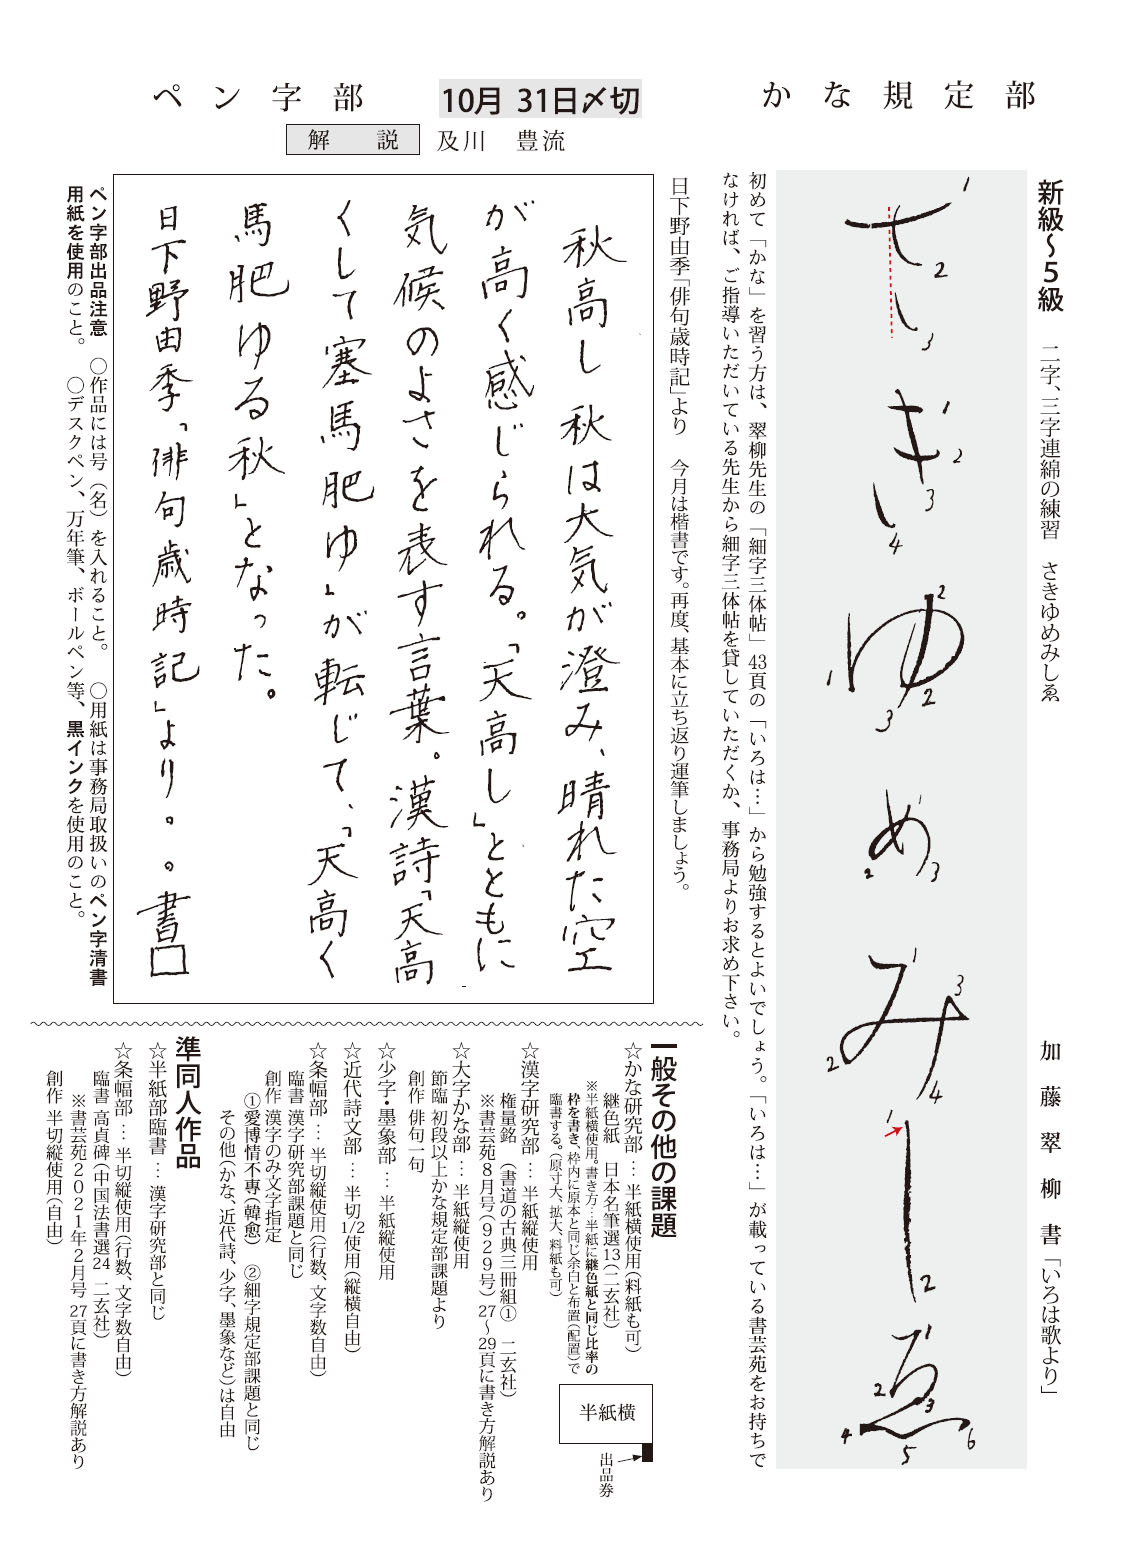 かな規定部
新級〜５級　二字、三字連綿の練習　さきゆめみしゑ
加藤翠柳書「いろは歌より」
さきゆめみしゑ
初めて「かな」を習う方は、翠柳先生の「細字三体帖」43頁の「いろは…」から勉強するとよいでしょう。「いろは…」が載っている書芸苑をお持ちで
なければ、ご指導いただいている先生から細字三体帖を貸していただくか、事務局よりお求め下さい。
10月 31日〆切
ペン字部
解　説　及川　豊流
日下野由季「俳句歳時記」より　今月は楷書です。再度、基本に立ち返り運筆しましょう。
秋高し　秋は大気が澄み、晴れた空
が高く感じられる。「天高し」とともに
気候のよさを表す言葉。漢詩「天高
くして塞馬肥ゆ」が転じて、「天高く
馬肥ゆる秋」となった。
日下野由季「俳句歳時記」より。。書□
ペン字部出品注意　○作品には号（名）を入れること。　○用紙は事務局取扱いのペン字清書
用紙を使用のこと。　○デスクペン、万年筆、ボールペン等、黒インクを使用のこと。
一般その他の課題
☆かな研究部 … 半紙横使用（料紙も可）
継色紙　日本名筆選13（二玄社）
※半紙横使用。書き方…半紙に継色紙と同じ比率の
枠を書き、枠内に原本と同じ余白と布置（配置）で
臨書する。（原寸大、拡大、料紙も可）
半紙横
出品券
☆漢字研究部 … 半紙縦使用
権量銘　（書道の古典三冊組①　二玄社）
※書芸苑８月号（９２９号）27〜29頁に書き方解説あり
☆大字かな部 … 半紙縦使用
節臨 初段以上かな規定部課題より
創作 俳句一句
☆少字・墨象部 … 半紙縦使用
☆近代詩文部 … 半切1/2使用（縦横自由）
☆条幅部 … 半切縦使用（行数、文字数自由）
臨書 漢字研究部課題と同じ
創作 漢字のみ文字指定
①愛博情不専（韓愈）　②細字規定部課題と同じ
その他（かな、近代詩、少字、墨象など）は自由
準同人作品
☆半紙部臨書 … 漢字研究部と同じ
☆条幅部 … 半切縦使用（行数、文字数自由）
臨書 高貞碑（中国法書選24　二玄社）
※書芸苑２０２１年２月号 27頁に書き方解説あり
創作 半切縦使用（自由）